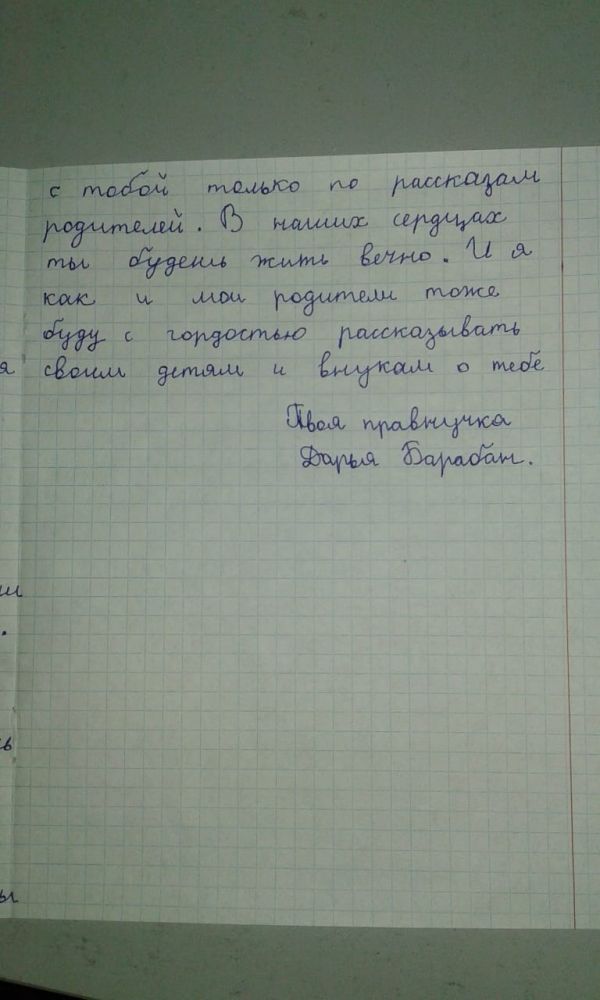 с тобой только по рассказам
родителей. В наших сердцах
ты будешь жить вечно. И я
как и мои родители тоже
буду с гордостью рассказывать
я
своим детям и внукам о тебе
Твоя правнучка
Дарья Барабан.
ши
.
сь
ы